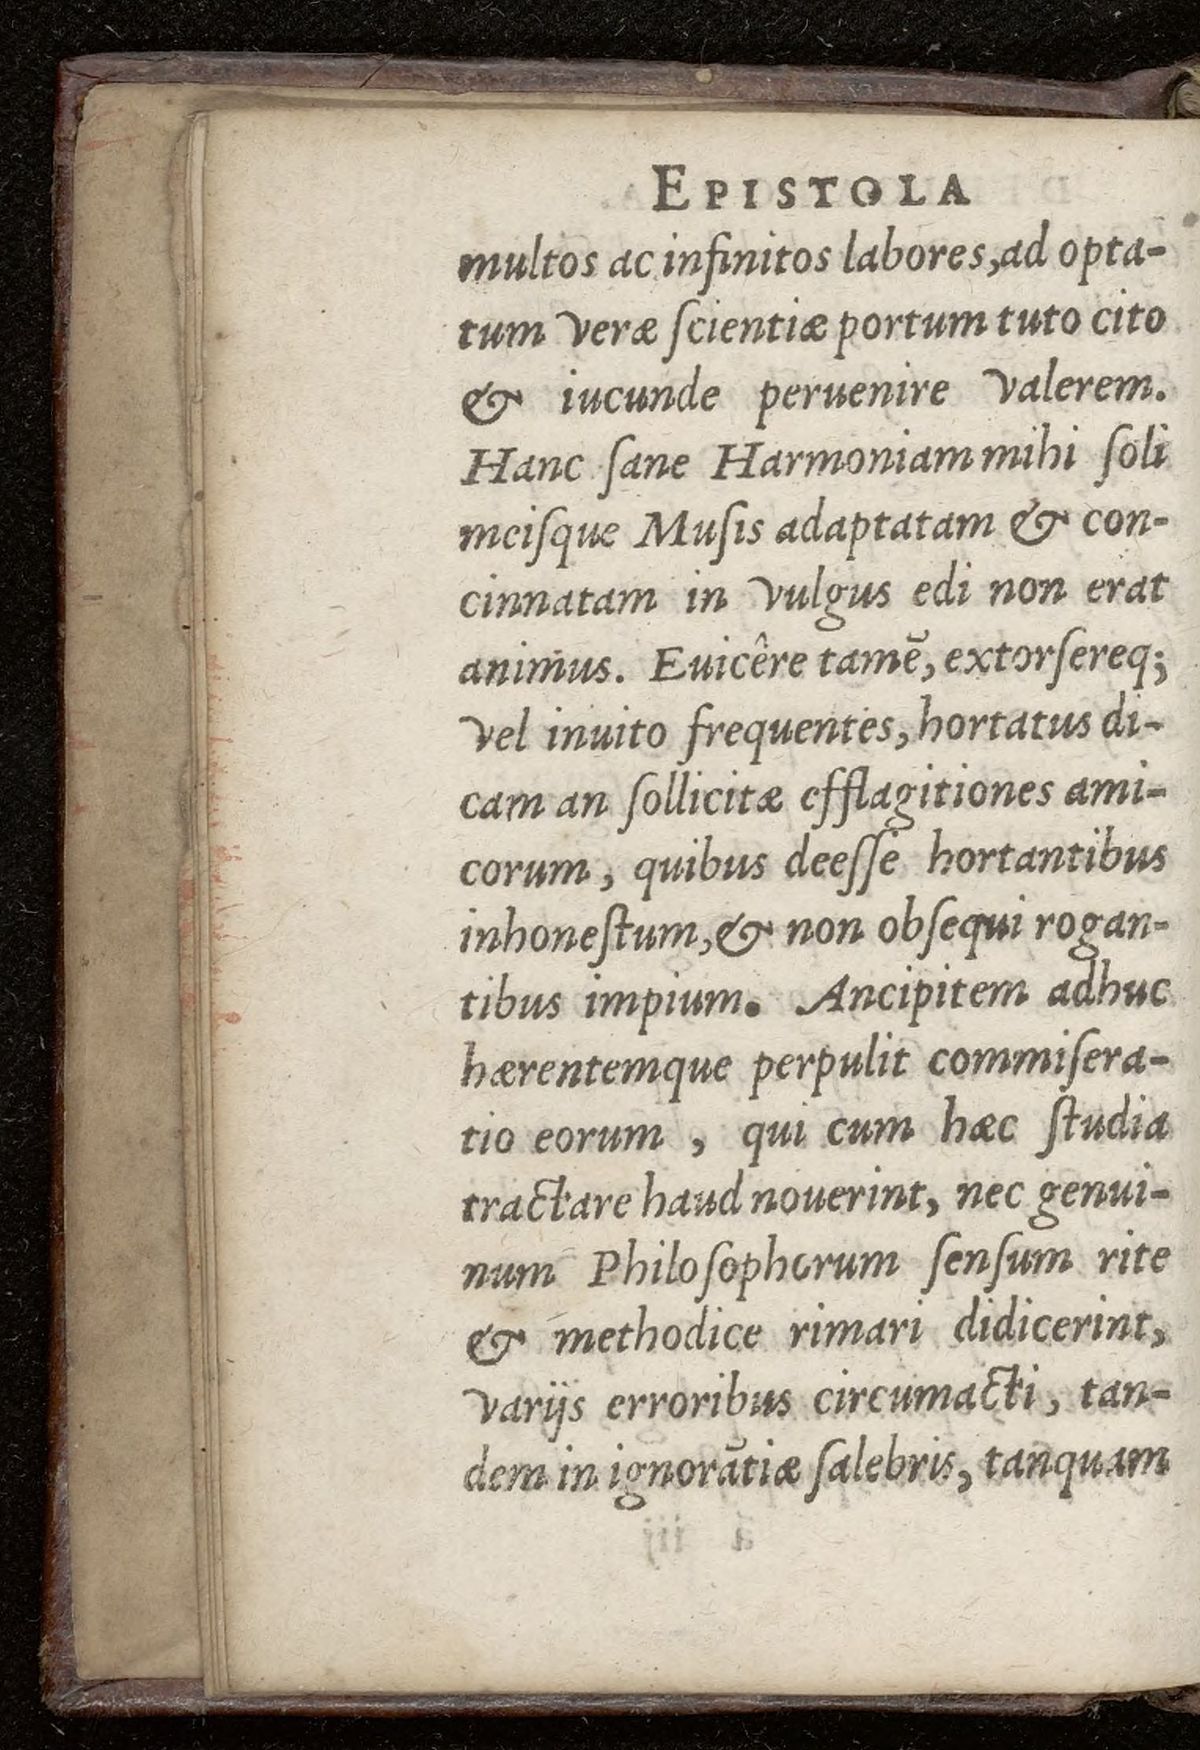 EPISTOLA
multos ac infinitos labores, ad opta-
tum veræ ſcientiæ portum tuto cito
& iucunde peruenire valerem.
Hanc ſane Harmoniam mihi ſoli
meiſque Muſis adaptatam & con-
cinnatam in vulgus edi non erat
animus. Euicêre tamẽ, extorſereq;
vel inuito frequentes, hortatus di-
cam an ſollicitæ efflagitiones ami-
corum, quibus deeſſe hortantibus
inhoneſtum, & non obſequi rogan-
tibus impium. Ancipitem adhuc
hærentemque perpulit commiſera-
tio eorum, qui cum hæc ſtudia
tractare haud nouerint, nec genui-
num Philoſophorum ſenſum rite
& methodice rimari didicerint,
varijs erroribus circumacti, tan-
dem in ignorãtiæ ſalebris, tanquam